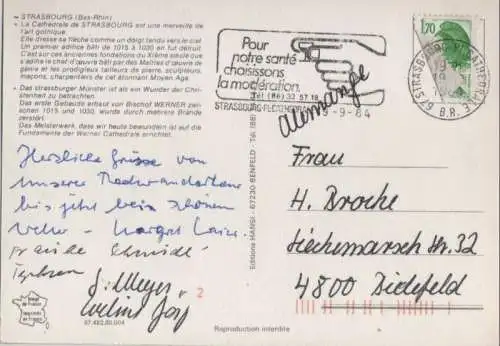 STRASBOURG (Bas-Rhin)
La Cathédrale de STRASBOURG est une merveille de
l'art gothique.
Elle dresse sa flèche comme un doigt tendu vers le ciel.
Un premier édifice bâti de 1015 à 1030 en fut détruit.
C'est sur ces anciennes fondations du XIème siècle que
s'élève le chef d'œuvre bâti par des Maîtres d'œuvre de
génie et les prodigieux tailleurs de pierre, sculpteurs,
maçons, charpentiers de cet étonnant Moyen Age.
Das strasburger Münster ist ein Wunder der Chri-
stenheit zu betrachten.
Das erste Gebäude erbaut von Bischof WERNER zwi-
schen 1015 und 1030, wurde durch mehrere Brände
zerstört.
Das Meisterwerk, dass wir heute bewundern ist auf die
Fundamente der Werner Cathedrale errichtet.
Pour
notre santé
choisissons
la modération.
Tél (88) 32 57 18
STRASBOURG
19-9-84
1,70
67 STRASBOURG
B.R.
Allemagne
Herzliche Grüsse von
unserer
bis jetzt beim schönen
Margot
Frau
H. Broche
Liechmarsch Str. 32
4800 Bielefeld
G. Meyer
2
Editions MANSI - 67230 BENFELD - Tél. (88)
Image de France
Imprimé en France
67.482.00.004
Reproduction interdite